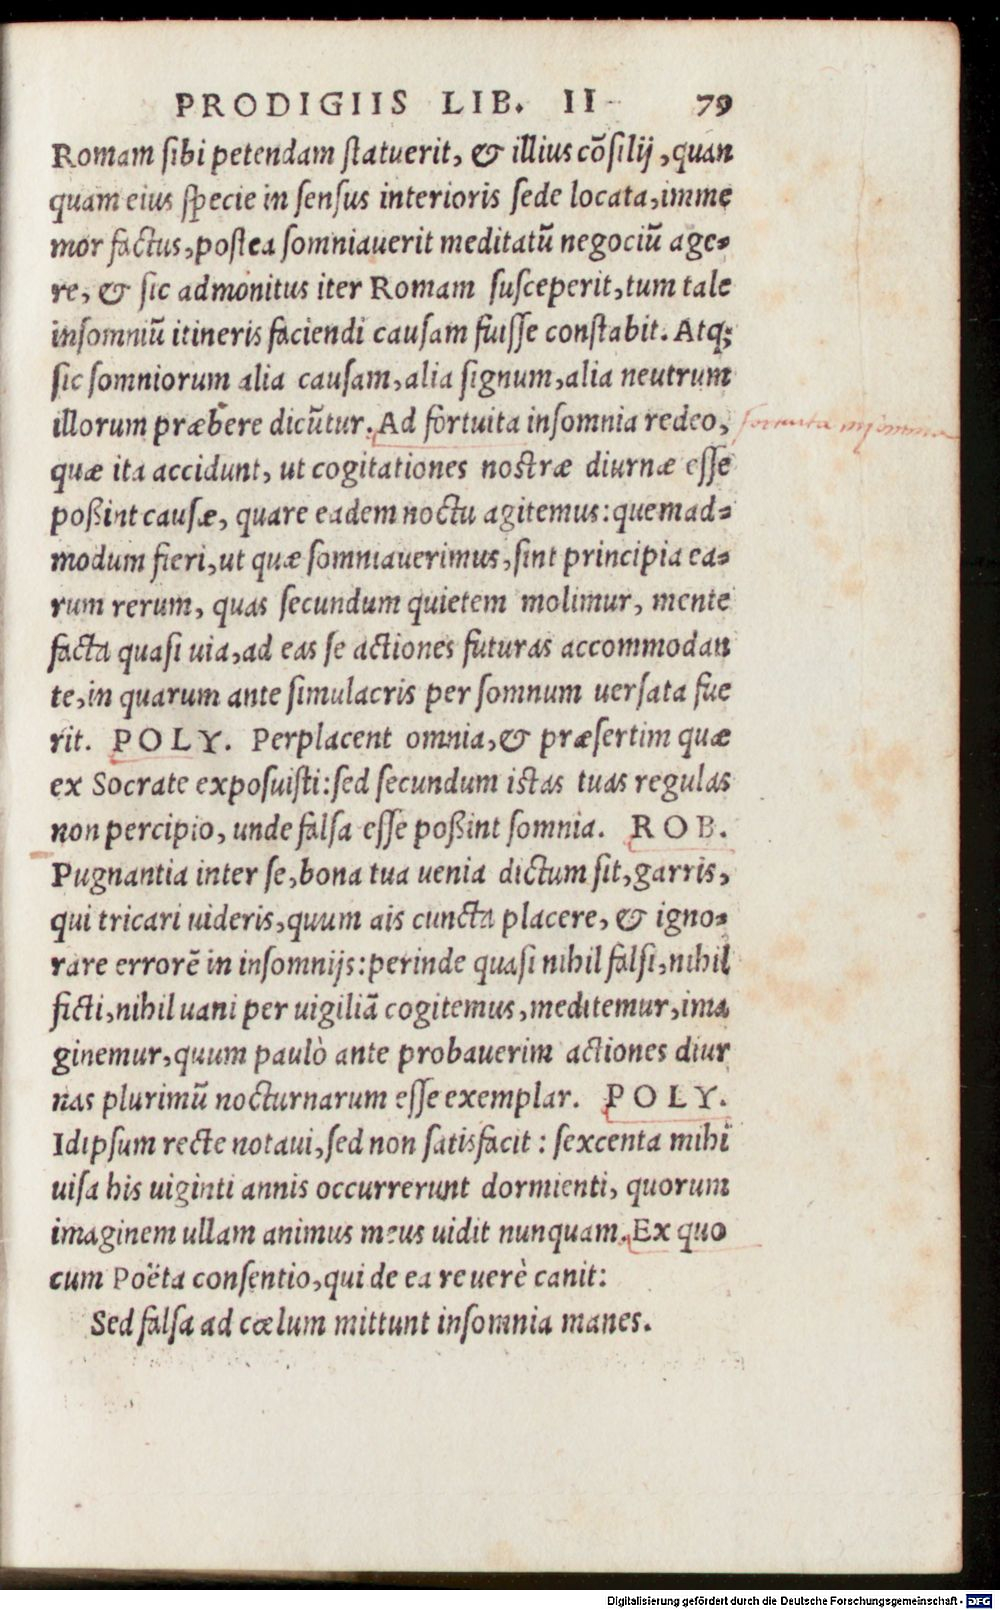 PRODIGIIS LIB. II 79
Romam sibi petendam statuerit, & illius cõsilij, quan
quam eius specie in sensus interioris sede locata, imme
mor factus, postea somniauerit meditatũ negociũ age-
re, & sic admonitus iter Romam susceperit, tum tale
insomniũ itineris faciendi causam fuisse constabit. Atq;
sic somniorum alia causam, alia signum, alia neutrum
illorum præbere dicũtur. Ad fortuita insomnia redeo,
fortuita insomnia
quæ ita accidunt, ut cogitationes nostræ diurnæ esse
poßint causæ, quare eadem noctu agitemus: quemad-
modum fieri, ut quæ somniauerimus, sint principia ea-
rum rerum, quas secundum quietem molimur, mente
facta quasi uia, ad eas se actiones futuras accommodan
te, in quarum ante simulacris per somnum uersata fue
rit. POLY. Perplacent omnia, & præsertim quæ
ex Socrate exposuisti: sed secundum istas tuas regulas
non percipio, unde falsa esse poßint somnia. ROB.
Pugnantia inter se, bona tua uenia dictum sit, garris,
qui tricari uideris, quum ais cuncta placere, & igno-
rare errorẽ in insomnijs: perinde quasi nihil falsi, nihil
ficti, nihil uani per uigiliã cogitemus, meditemur, ima
ginemur, quum paulò ante probauerim actiones diur
nas plurimũ nocturnarum esse exemplar. POLY.
Idipsum recte notaui, sed non satisfacit: sexcenta mihi
uisa his uiginti annis occurrerunt dormienti, quorum
imaginem ullam animus meus uidit nunquam. Ex quo
cum Poëta consentio, qui de ea re uerè canit:
Sed falsa ad cœlum mittunt insomnia manes.
Digitalisierung gefördert durch die Deutsche Forschungsgemeinschaft - DFG